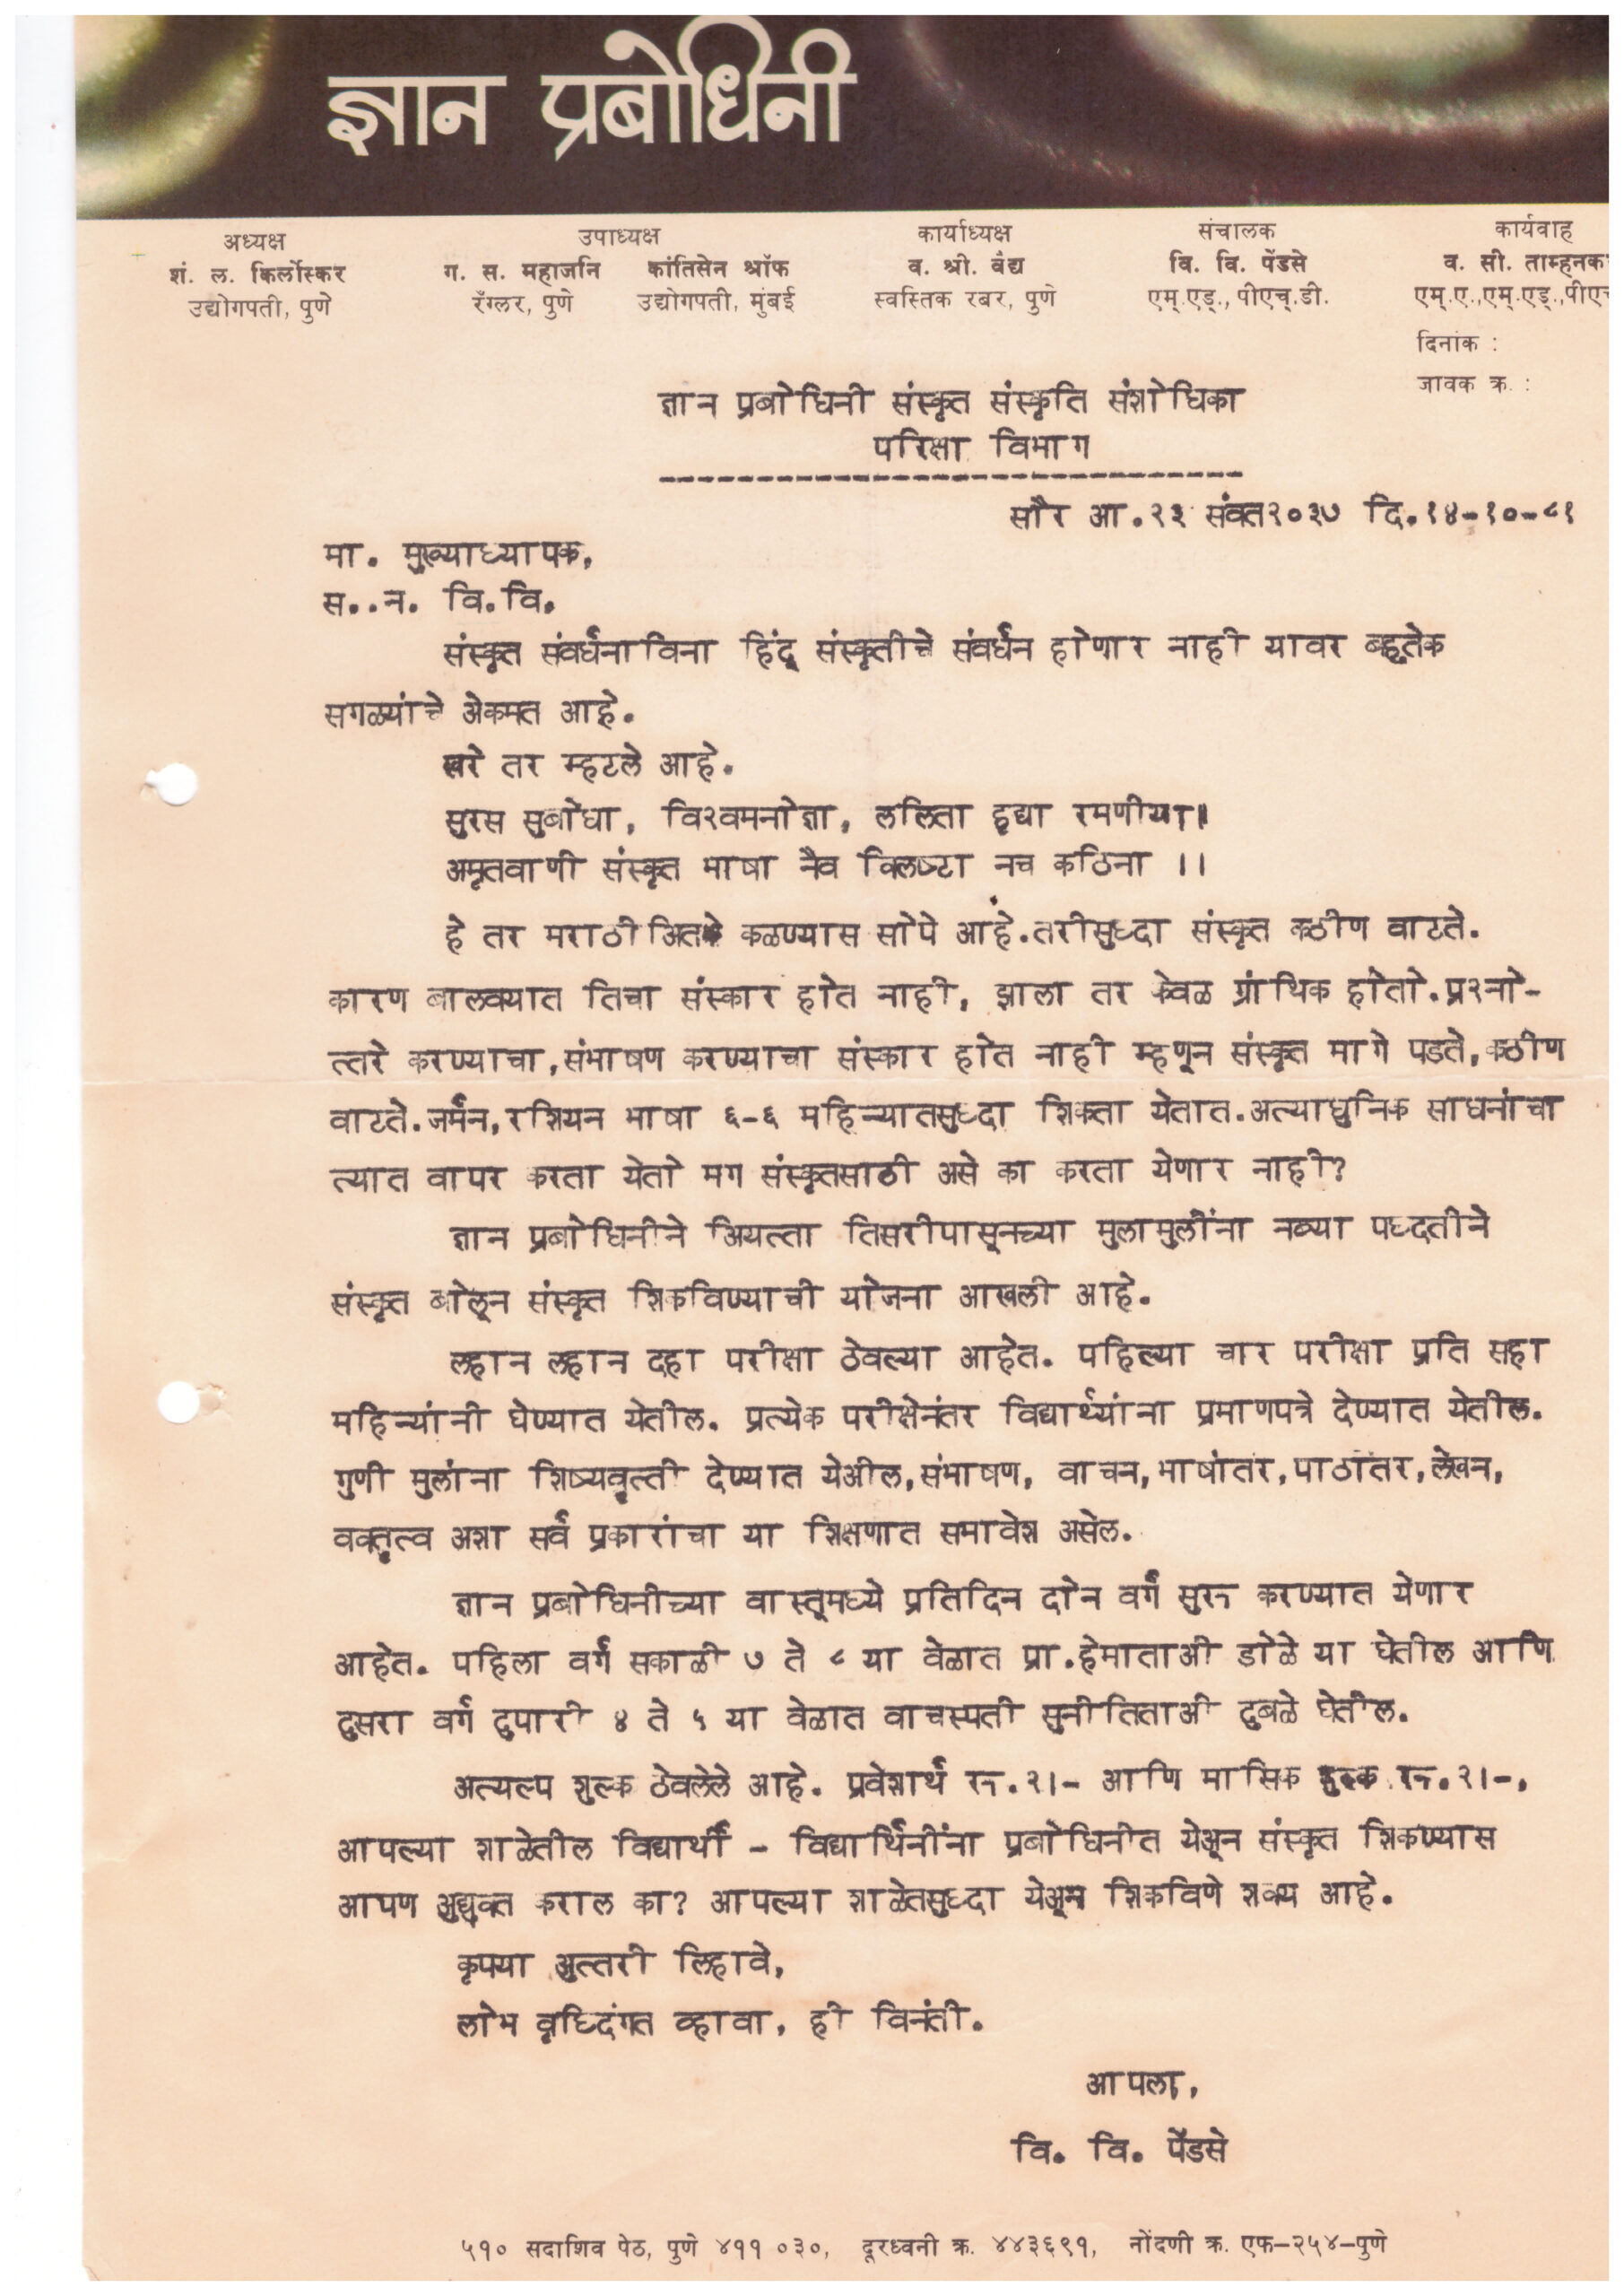 ज्ञान प्रबोधिनी
अध्यक्ष उपाध्यक्ष कार्याध्यक्ष संचालक कार्यवाह
शं. ल. किर्लोस्कर ग. स. महाजनि कांतिसेन श्रॉफ व. श्री. वैद्य वि. वि. पेंडसे व. सी. ताम्हनक
उद्योगपती, पुणे रँग्लर, पुणे उद्योगपती, मुंबई स्वस्तिक रबर, पुणे एम्.एड्., पीएच्.डी. एम्.ए.,एम्.एड्.,पीएच
दिनांक :
जावक क्र. :
ज्ञान प्रबोधिनी संस्कृत संस्कृति संशोधिका
परिक्षा विभाग
सौर आ.२३ संवत२०३७ दि.१४-१०-८१
मा. मुख्याध्यापक,
स..न. वि.वि.
संस्कृत संवर्धनाविना हिंदू संस्कृतीचे संवर्धन होणार नाही यावर बहुतेक
सगळ्यांचे अेकमत आहे.
खरे तर म्हटले आहे.
सुरस सुबोधा, विश्वमनोज्ञा, ललिता हृद्या रमणीया।
अमृतवाणी संस्कृत भाषा नैव क्लिष्टा नच कठिना ।।
हे तर मराठी अितके कळण्यास सोपे आहे.तरीसुध्दा संस्कृत कठीण वाटते.
कारण बालवयात तिचा संस्कार होत नाही, झाला तर केवळ ग्रांथिक होतो.प्रश्नो-
त्तरे करण्याचा,संभाषण करण्याचा संस्कार होत नाही म्हणून संस्कृत मागे पडते,कठीण
वाटते.जर्मन,रशियन भाषा ६-६ महिन्यातसुध्दा शिकता येतात.अत्याधुनिक साधनांचा
त्यात वापर करता येतो मग संस्कृतसाठी असे का करता येणार नाही?
ज्ञान प्रबोधिनीने अियत्ता तिसरीपासूनच्या मुलामुलींना नव्या पध्दतीने
संस्कृत बोलून संस्कृत शिकविण्याची योजना आखली आहे.
लहान लहान दहा परीक्षा ठेवल्या आहेत. पहिल्या चार परीक्षा प्रति सहा
महिन्यांनी घेण्यात येतील. प्रत्येक परीक्षेनंतर विद्यार्थ्यांना प्रमाणपत्रे देण्यात येतील.
गुणी मुलांना शिष्यवृत्ती देण्यात येअील,संभाषण, वाचन,भाषांतर,पाठांतर,लेखन,
वक्तृत्व अशा सर्व प्रकारांचा या शिक्षणात समावेश असेल.
ज्ञान प्रबोधिनीच्या वास्तूमध्ये प्रतिदिन दोन वर्ग सुरू करण्यात येणार
आहेत. पहिला वर्ग सकाळी ७ ते ८ या वेळात प्रा.हेमाताअी डोळे या घेतील आणि
दुसरा वर्ग दुपारी ४ ते ५ या वेळात वाचस्पती सुनीतिताअी दुबळे घेतील.
अत्यल्प शुल्क ठेवलेले आहे. प्रवेशार्थ रू.२।- आणि मासिक शुल्क रू.२।-.
आपल्या शाळेतील विद्यार्थी - विद्यार्थिनींना प्रबोधिनीत येअून संस्कृत शिकण्यास
आपण अुद्युक्त कराल का? आपल्या शाळेतसुध्दा येअून शिकविणे शक्य आहे.
कृपया अुत्तरी लिहावे,
लोभ वृध्दिंगत व्हावा, ही विनंती.
आपला,
वि. वि. पेंडसे
५१० सदाशिव पेठ, पुणे ४११ ०३०, दूरध्वनी क्र. ४४३६९१, नोंदणी क्र. एफ-२५४-पुणे